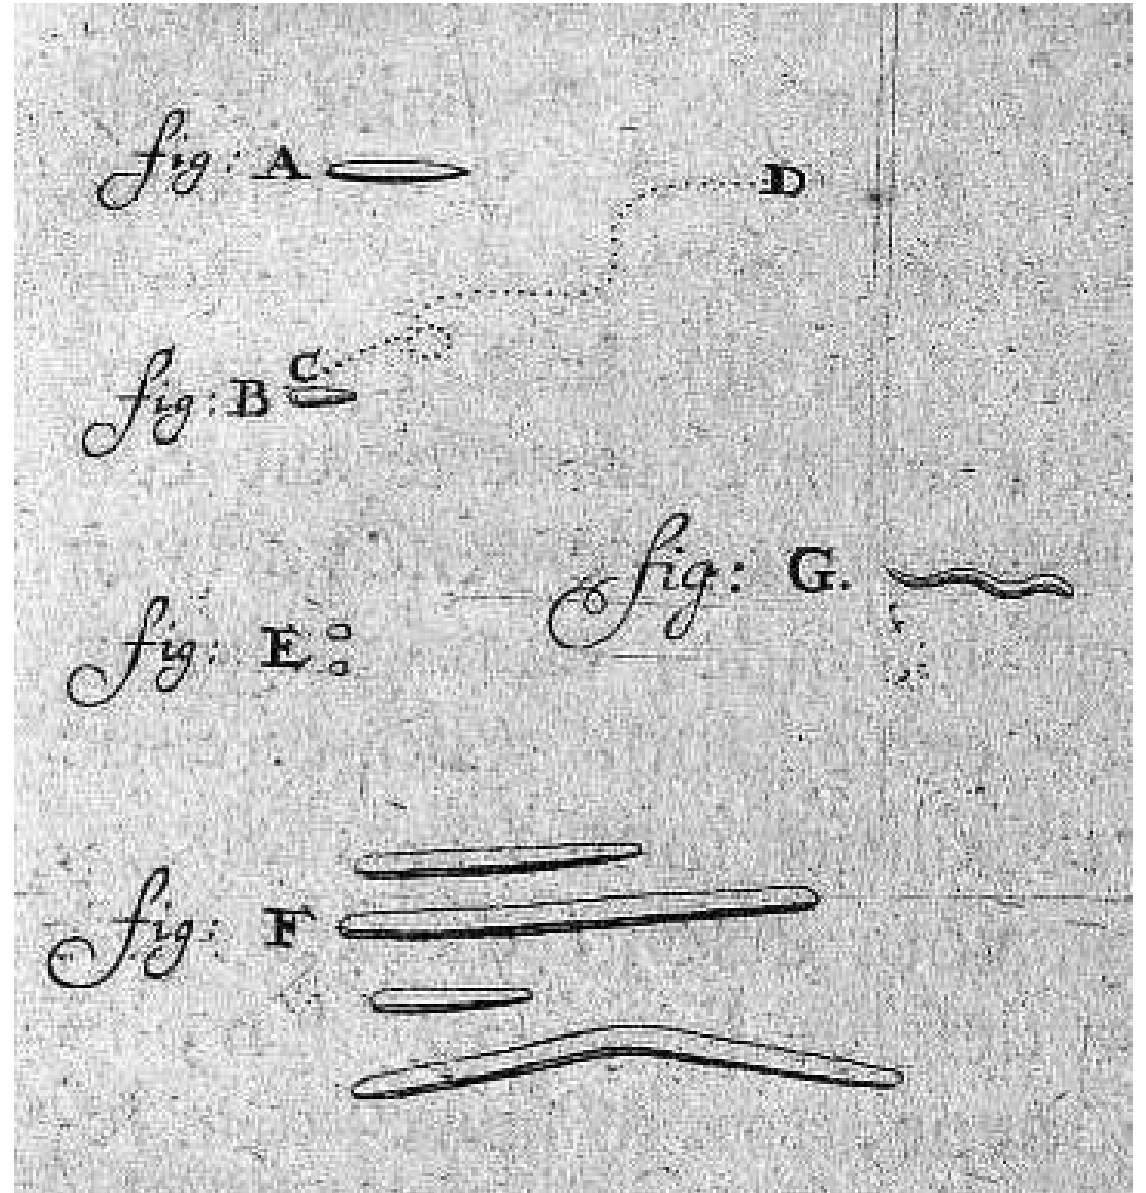 fig: A
D
C.
fig: B
fig: G.
fig: E
fig: F